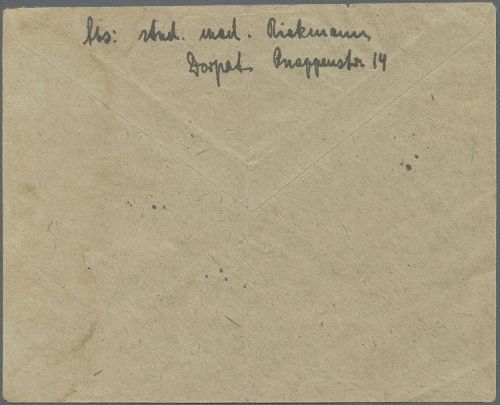 Abs: stud. med. Rickmann
Dorpat Knappenstr 14